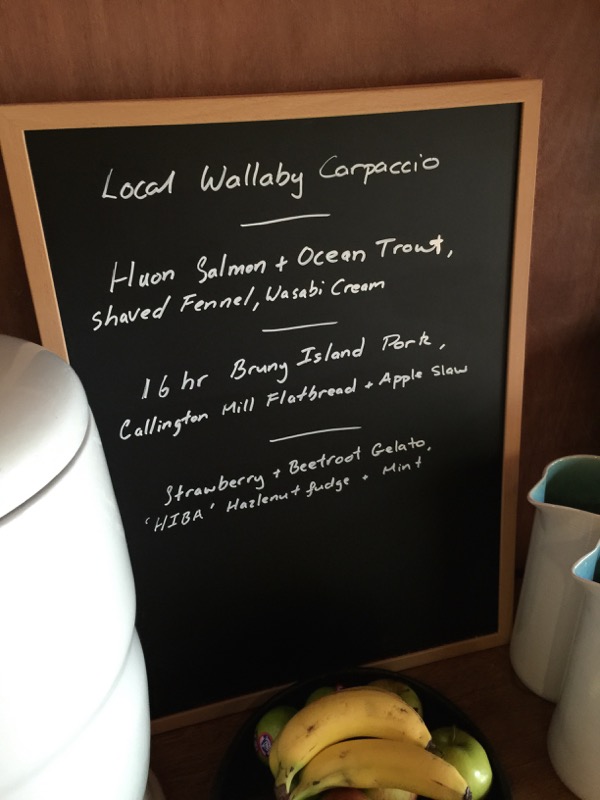 Local Wallaby Carpaccio
Huon Salmon + Ocean Trout,
Shaved Fennel, Wasabi Cream
16 hr Bruny Island Pork,
Callington Mill Flatbread + Apple Slaw
Strawberry + Beetroot Gelato,
'HIBA' Hazlenut fudge + Mint